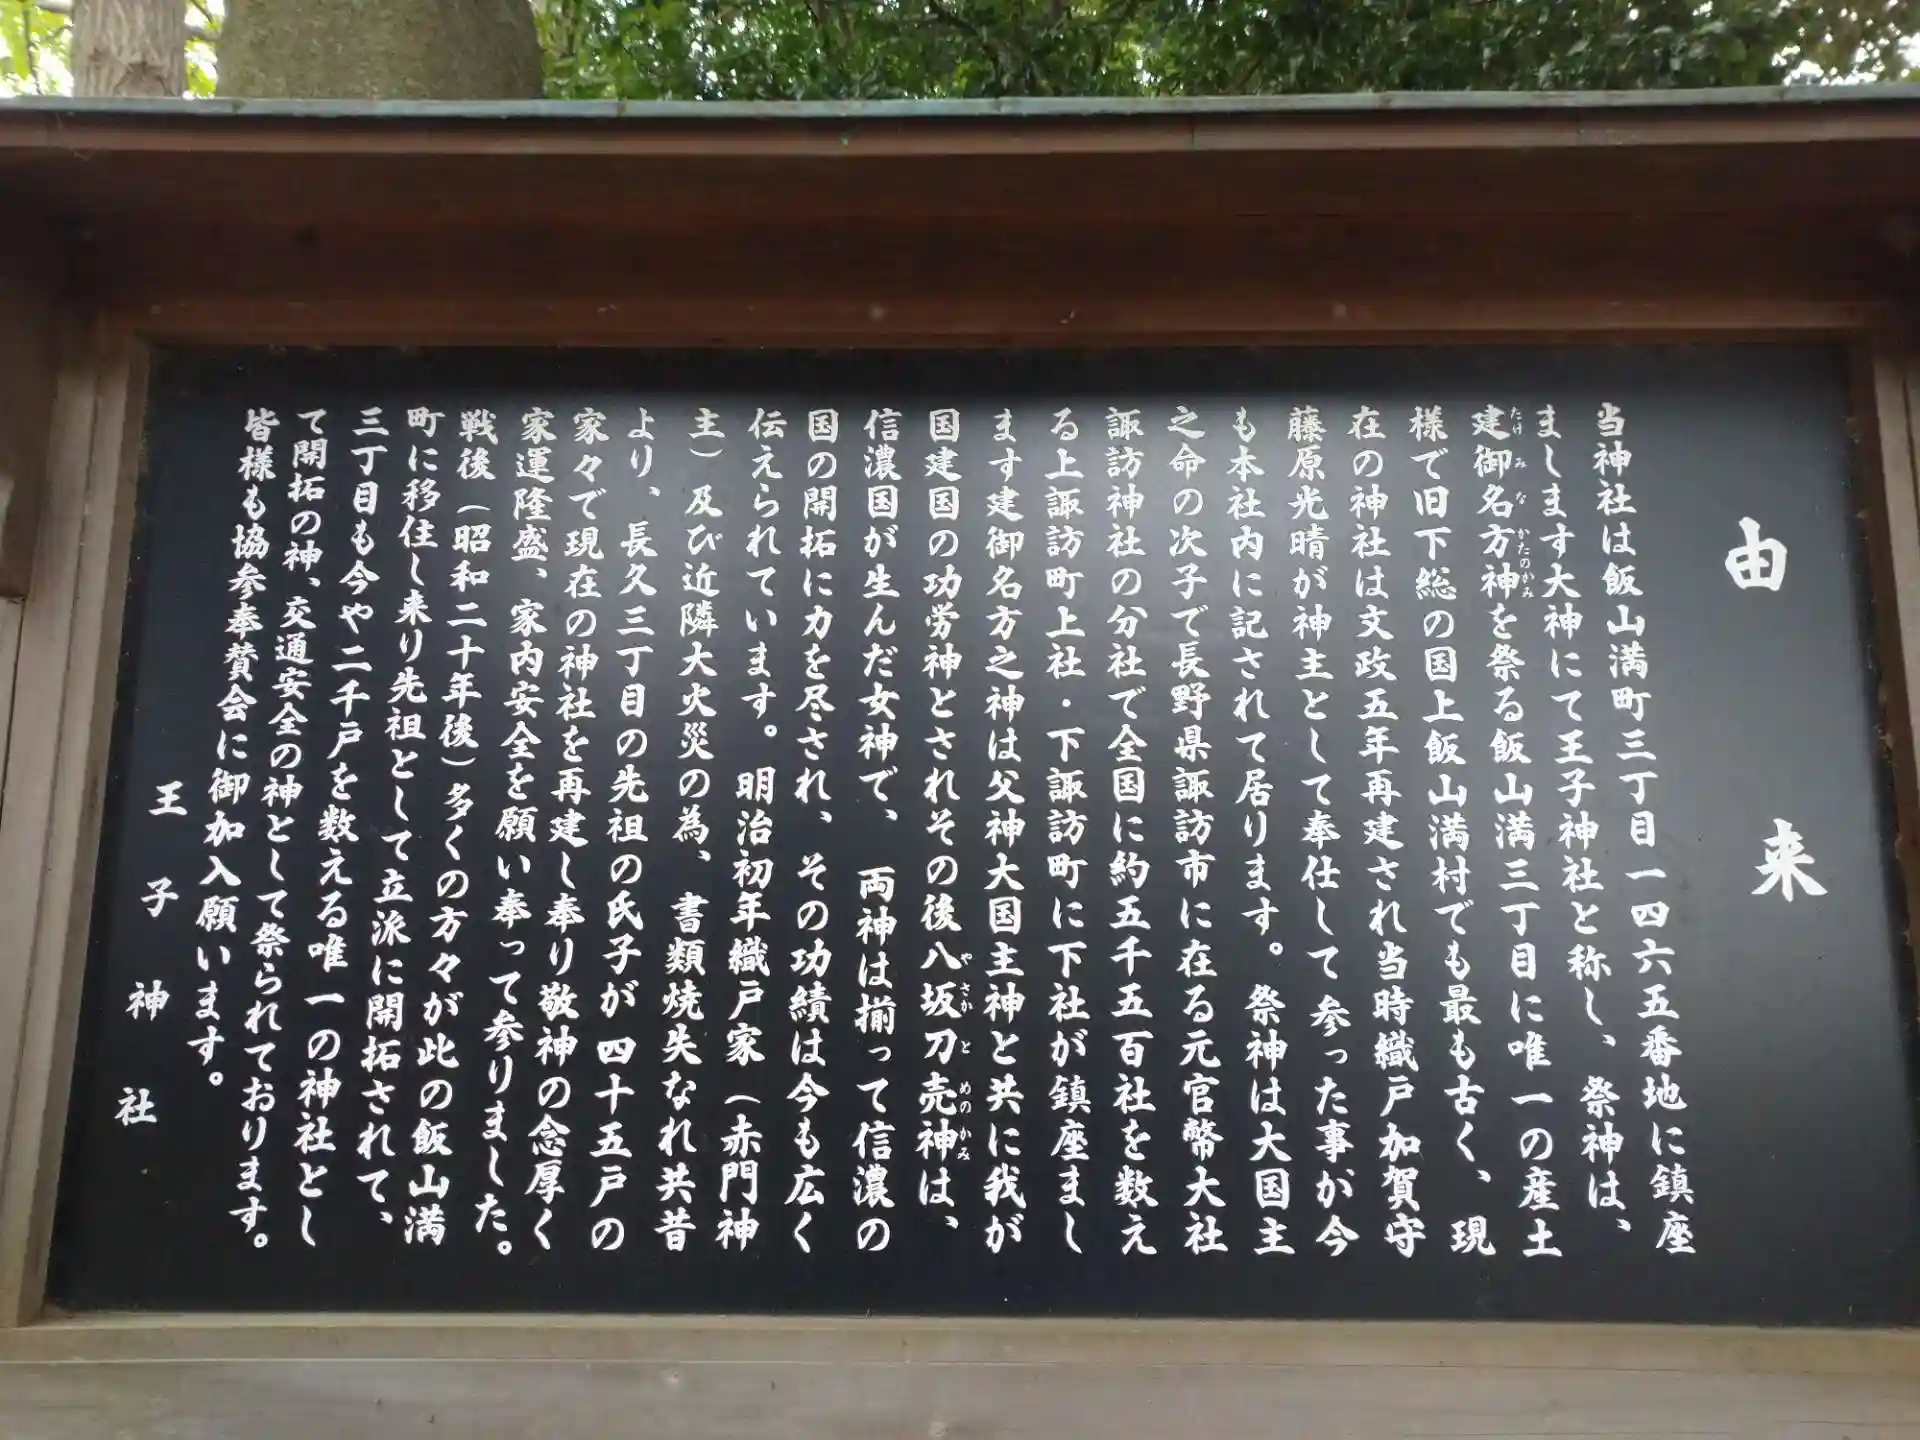 由来
当神社は飯山満町三丁目一四六五番地に鎮座
まします大神にて王子神社と称し、祭神は、
建御名方神を祭る飯山満三丁目に唯一の産土
たけみなかたのかみ
様で旧下総の国上飯山満村でも最も古く、現
在の神社は文政五年再建され当時織戸加賀守
藤原光晴が神主として奉仕して参った事が今
も本社内に記されて居ります。祭神は大国主
之命の次子で長野県諏訪市に在る元官幣大社
諏訪神社の分社で全国に約五千五百社を数え
る上諏訪町上社・下諏訪町に下社が鎮座まし
ます建御名方之神は父神大国主神と共に我が
国建国の功労神とされその後八坂刀売神は、
やさかとめのかみ
信濃国が生んだ女神で、両神は揃って信濃の
国の開拓に力を尽され、その功績は今も広く
伝えられています。明治初年織戸家（赤門神
主）及び近隣大火災の為、書類焼失なれ共昔
より、長久三丁目の先祖の氏子が四十五戸の
家々で現在の神社を再建し奉り敬神の念厚く
家運隆盛、家内安全を願い奉って参りました。
戦後（昭和二十年後）多くの方々が此の飯山満
町に移住し来り先祖として立派に開拓されて、
三丁目も今や二千戸を数える唯一の神社とし
て開拓の神、交通安全の神として祭られております。
皆様も協参奉賛会に御加入願います。
王子神社